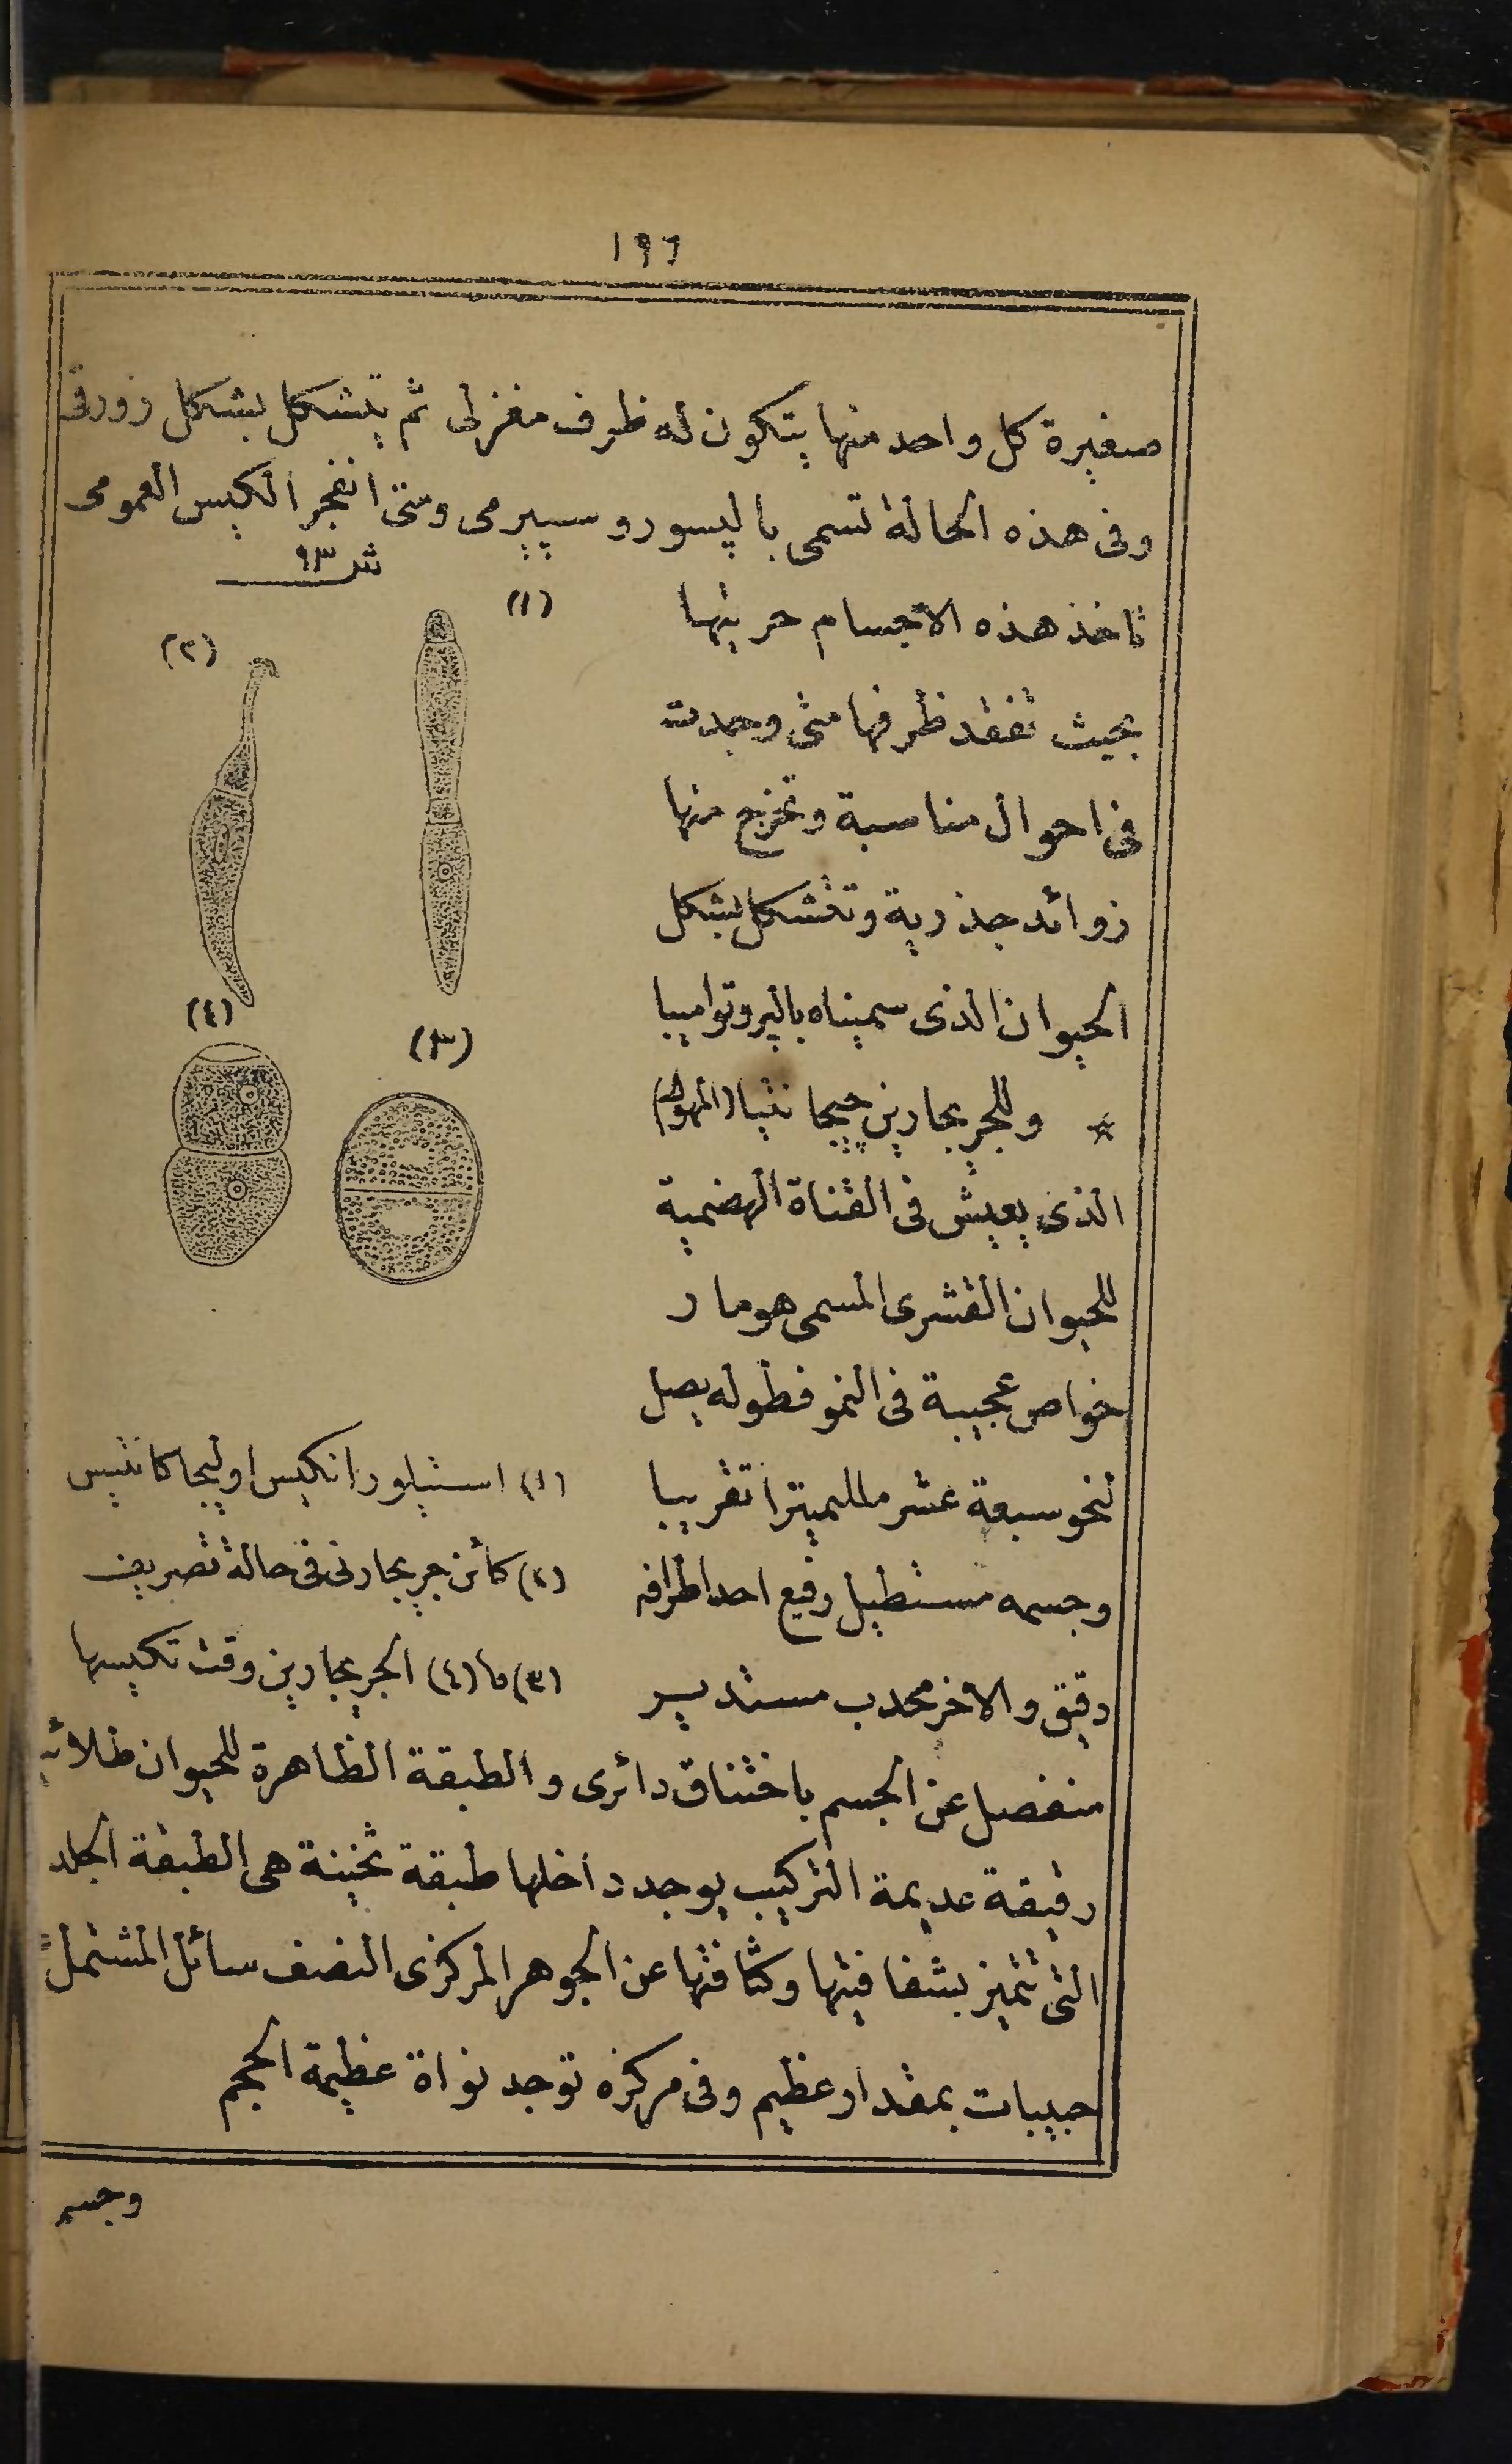 ١٩٦
صغيرة كل واحد منها يتكون له ظرف مغزلى ثم يتشكل بشكل زورقى
وفى هذه الحالة تسمى باليسوروسپيرمى ومتى انفجر الكيس العمومى
تاخذ هذه الاجسام حريتها
بحيث تفقد ظرفها متى وجدت
فى احوال مناسبة وتخرج منها
زوائد جذرية وتتشكل بشكل
الحيوان الذى سميناه بالپروتواميبا
☆ وللجريجارين چيجانتيا (المهول)
الذى يعيش فى القناة الهضمية
للحيوان القشرى المسمى هومار
خواص عجيبة فى النمو فطوله يصل
لنحو سبعة عشر ملليميترا تقريبا
وجسمه مستطيل رفيع احد اطرافه
دقيق والاخر محدب مستدير
ش ٩٣
(١)
(٢)
(٣)
(٤)
(١) استيلورانكيس اوليجاكانتيس
(٢) كائن جريجارنى فى حالة تصريف
(٣) و (٤) الجريجارين وقت تكيسها
منفصل عن الجسم باختناق دائرى والطبقة الظاهرة للحيوان طلائية
رقيقة عديمة التركيب يوجد داخلها طبقة ثخينة هى الطبقة الجلد
التى تتميز بشفافيتها وكثافتها عن الجوهر المركزى النصف سائل المشتمل
حبيبات بمقدار عظيم وفى مركزه توجد نواة عظيمة الحجم
وجسم